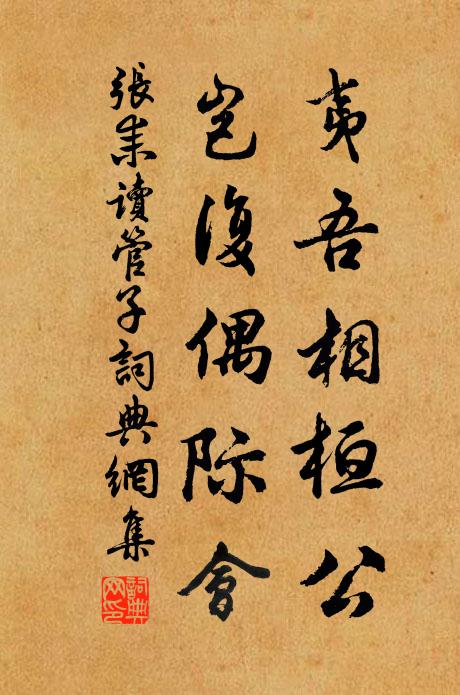 夷吾相桓公
岂復偶际會
張耒讀管子詞典網集
詞典网印